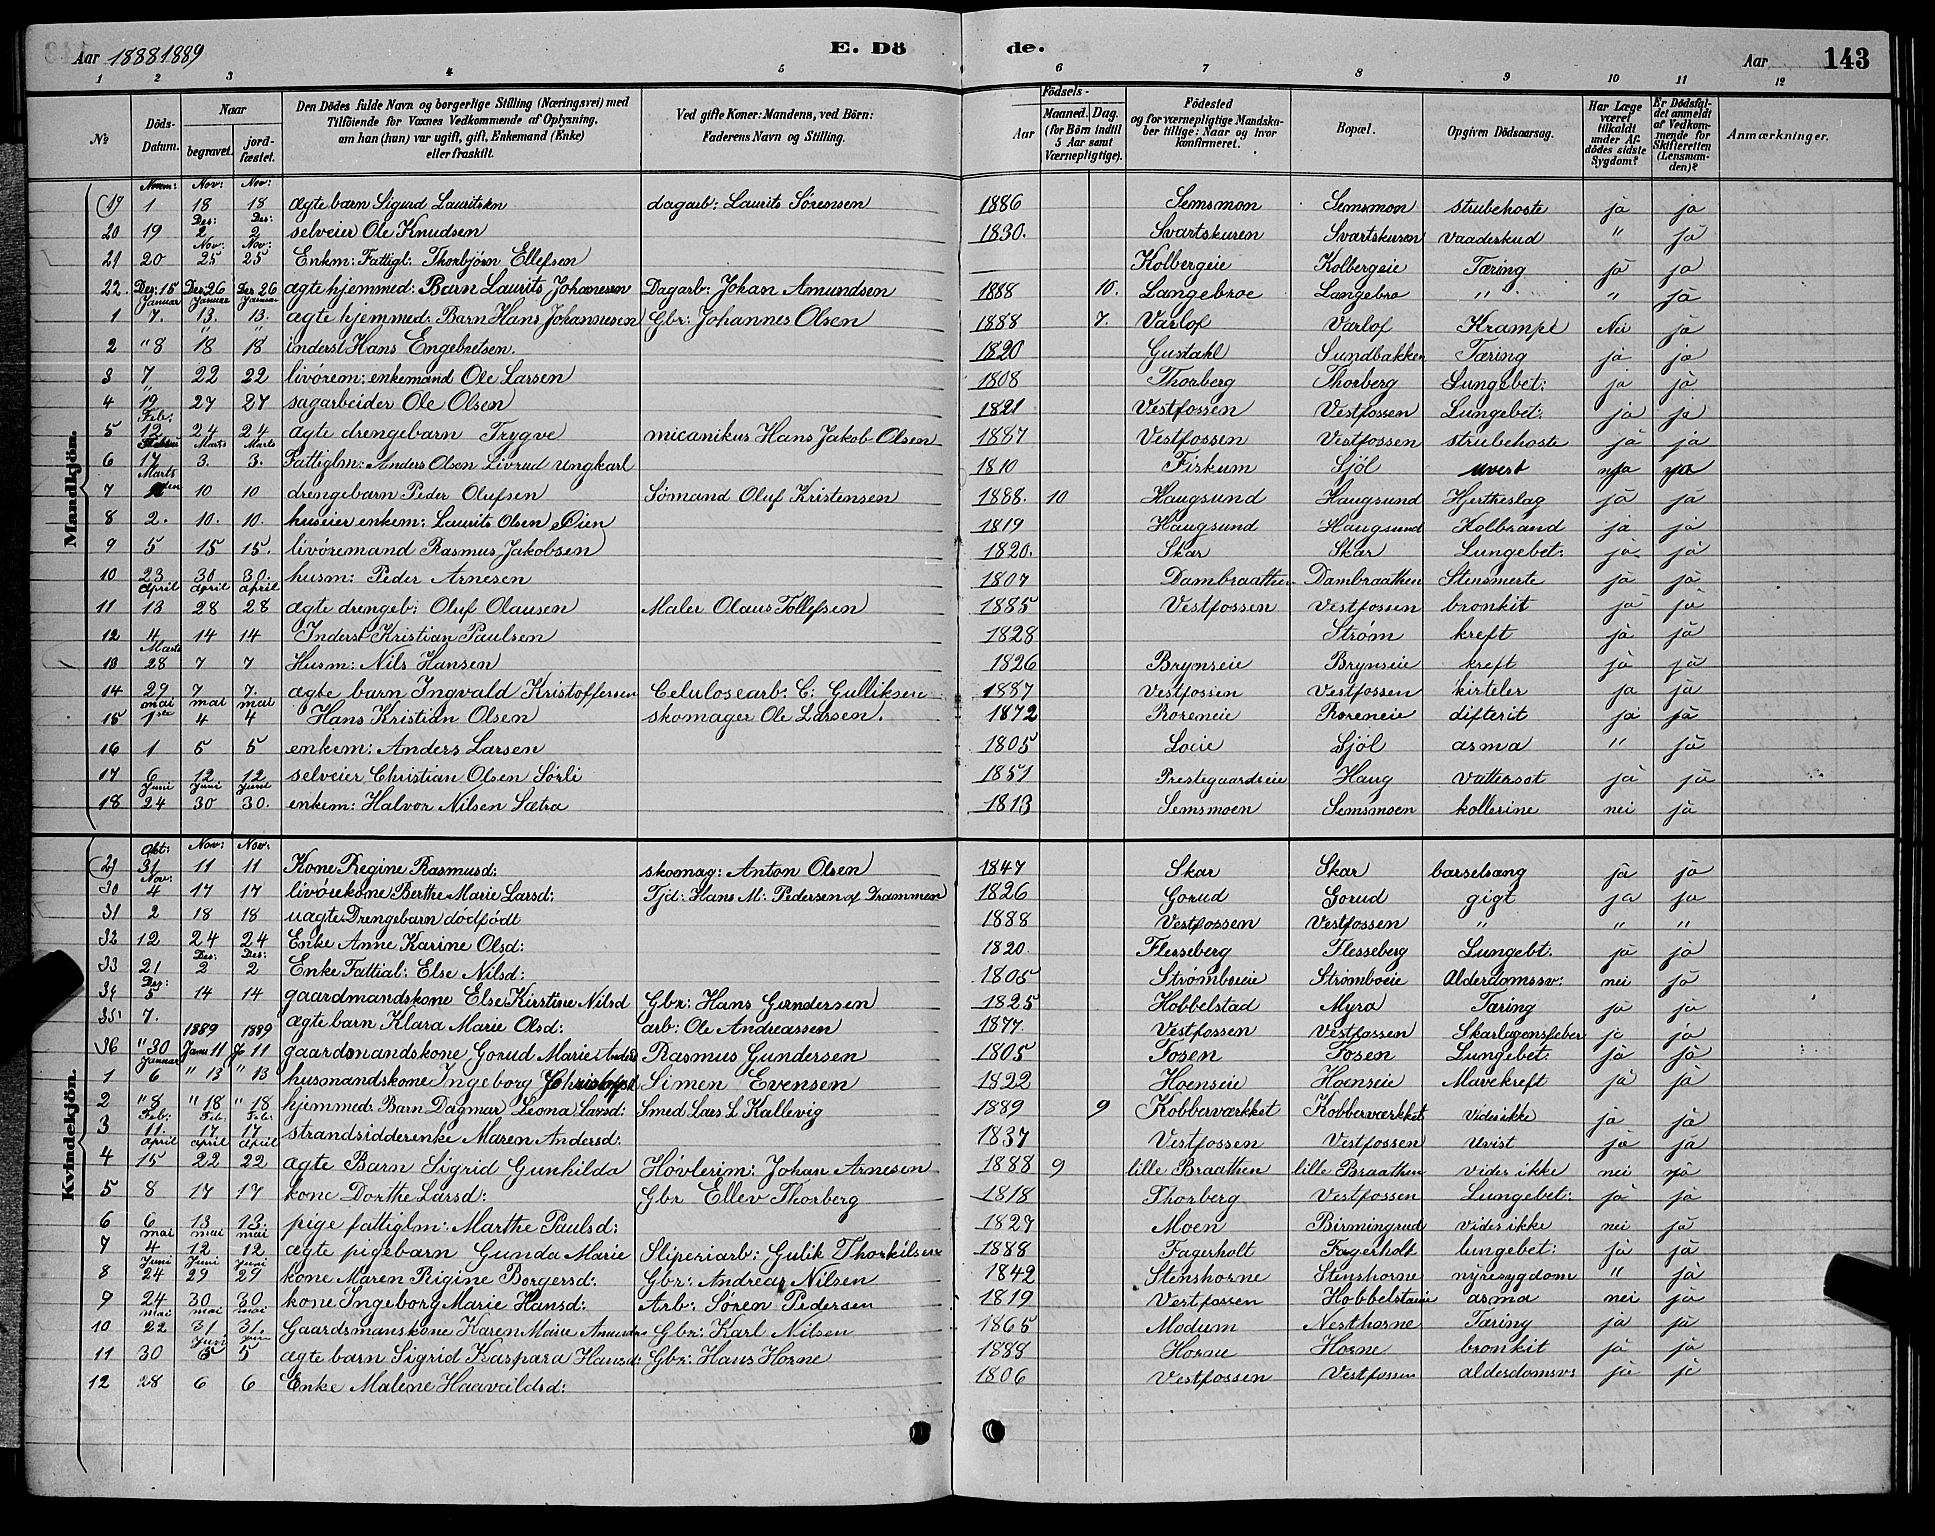 Aar 1888 1889 E. Dö de. Aar 143
1 2 3 4 5 6 7 8 9 10 11 12
No Döds-Datum. Naar begravet. jordfæstet. Den Dödes fulde Navn og borgerlige Stilling (Næringsvei) med Tilföiende for Voxnes Vedkommende af Oplysning, om han (hun) var ugift, gift, Enkemand (Enke) eller fraskilt. Ved gifte Koner: Mandens, ved Börn: Faderens Navn og Stilling. Födsels- Aar Maaned. Dag. (for Börn indtil 5 Aar samt Værnepligtige). Födested og for værnepligtige Mandskaber tillige: Naar og hvor konfirmeret. Bopæl. Opgiven Dödsaarsag. Har Læge været tilkaldt under Afdödes sidste Sygdom? Er Dödsfaldet anmeldt af Vedkommende for Skifteretten (Lensmanden)? Anmærkninger.
Mandkjön.
Novem: Nov: Nov:
19 1 18 18 ægte barn Sigurd Lauritsen dagarb: Laurits Sörensen 1886 Semsmon Semsmon strubehoste ja ja
Des: Des:
20 19 2 2 selveier Ole Knudsen 1830. Svartskuren Svartskuren Vaadeskud " ja
Nov: Nov:
21 20 25 25 Enkm: Fattigl: Thorbjörn Ellefsen Kolbergeie Kolbergeie Tæring ja ja
22. Des: 15 Des 26 Des 26 ægte hjemmed: Barn Laurits Johannessen Dagarb: Johan Amundsen 1888 10. Langebroe Langebro " " ja
Januar Januar Januar
1 7. 13. 13. ægte hjemmed: Barn Hans Johannesen Gbr: Johannes Olsen 1888 7. Varlof Varlof Krampe Nei ja
2 " 8 18 18 inderst Hans Engebretsen. 1820 Gustahl Sundbakken Tæring ja ja
3 7 22 22 livörem: enkemand Ole Larsen 1808 Thorberg Thorberg Lungebet: ja ja
4 19 27 27 sagarbeider Ole Olsen 1821 Vestfossen Vestfossen Lungebet: ja ja
Feb:
5 12 24 24 ægte drengebarn Trygve micanikus Hans Jakob Olsen 1887 Vestfossen Vestfossen strubehoste ja ja
Marts Marts
6 17 3. 3. Fattiglm: Anders Olsen Livrud ungkarl 1810 Firkum Sjöl uvist ja
Marts
7 10 10 drengebarn Peder Olufsen Sömand Oluf Kristensen 1888. 10 Haugsund Haugsund Hjerteslag ja ja
8 2. 10. 10. huseier enkem: Laurits Olsen Öien 1819 Haugsund Haugsund Kolbrand ja ja
9 5 15 15. livöremand Rasmus Jakobsen 1820. Skar Skar Lungebet: ja ja
10 23 30 30. husm: Peder Arnesen 1807 Dambraathen Dambraathen Stensmerte ja ja
April April April
11 13 28 28 ægte drengeb: Oluf Olausen Maler Olaus Tollefsen 1885 Vestfossen Vestfossen bronkit ja ja
12 4 14 14 Inderst Kristian Paulsen 1828 Strøm kreft ja ja
Marts
13 28 7 7 Husm: Nils Hansen 1826 Brynseie Brynseie kreft ja ja
14 29 7 7. ægte barn Ingvald Kristoffersen Celulosearb. C: Gulliksen 1887 Vestfossen Vestfossen kirteler ja ja
mai mai mai
15 1ste 4 4 Hans Kristian Olsen skomager Ole Larsen. 1872 Roreneie Roreneie difterit ja ja
16 1 5 5 enkem: Anders Larsen 1805 Loeie Sjöl asma " ja
17 6 12 12 selveier Christian Olsen Sörli 1851 Prestegaardseie Haug Vattersot ja ja
Juni Juni Juni
18 24 30 30. enkem: Halvor Nilsen Sætra 1813 Semsmoen Semsmoen kollerine nei ja
Kvindekjön.
Okt: Nov: Nov:
29 31 11 11 Kone Regine Rasmusd: skomag: Anton Olsen 1847 Skar Skar barselsang ja ja
Nov:
30 4 17 17 livörekone Berthe Marie Larsd: Tjd: Hans M: Pedersen af Drammen 1826 Gorud Gorud gigt ja ja
31 2 18 18 uægte Drengebarn dødfødt 1888 Vestfossen Vestfossen " " "
32 12 24 24 Enke Anne Karine Olsd: 1820 Flesseberg Flesseberg Lungebt. ja ja
Des: Des:
33 21 2 2 Enke Fattigl: Else Nilsd: 1805 Strømboeie Strømboeie Alderdomssv: nei ja
Des:
34 5 14 14 gaardmandskone Else Kirstine Nilsd Gbr: Hans Gundersen 1825 Hobbelstad Myra Tæring ja ja
35 7. ægte barn Klara Marie Olsd: arb: Ole Andreassen 1877. Vestfossen Vestfossen Skarlagensfeber ja ja
1889 1889
36 " 30 Janu 11 Ja 11 gaardsmandskone Gorud Marie Andersd Rasmus Gundersen 1805 Fosen Fosen Lungebet: ja ja
Januar
1 6 " 13 " 13 husmandskone Ingeborg Christofsd Simen Evensen 1822 Hoenseie Hoenseie Mavekreft ja ja
2 " 8 " 18 " 18 hjemmed: Barn Dagmar Leona Larsd: Smed Lars L Kallevig 1889 9 Kobberværkket Kobberværkket vides ikke ja ja
Feb: Feb. Feb:
3 11. 17 17 strandsidderenke Maren Andersd: 1837 Vestfossen Vestfossen Uvist ja ja
april april april
4 15 22 22 ægte Barn Sigrid Gunhilda Hövlerim: Johan Arnesen 1888 9 lille Braathen lille Braathen vides ikke nei ja
5 8 17 17 kone Dorthe Larsd: Gbr Ellev Thorberg 1818 Thorberg Vestfossen Lungebet: ja ja
6 6 13 13. pige fattiglm: Marthe Paulsd: 1827 Moen Birmingrud vides ikke nei ja
mai mai mai
7 4 12 12 ægte pigebarn Gunda Marie Sliperiarb: Gulik Thorkilsen 1888 Fagerholt Fagerholt lungebet: ja ja
Juni Juni Juni
8 24 29 29 kone Maren Rigine Borgersd: Gbr: Andreas Nilsen 1842 Stenshorne Stenshorne nyresygdom " ja
9 24 30 30 kone Ingeborg Marie Hansd: Arb: Sören Pedersen 1819 Vestfossen Hobbelstaeie asma nei ja
mai mai mai
10 22 31 31. Gaardsmanskone Karen Marie Amunds Gbr: Karl Nilsen 1865 Modum Nesthorne Tæring ja ja
Juni Juni
11 30 5 5 ægte barn Sigrid Kaspara Hansd: Gbr: Hans Horne 1888 Horne Horne bronkit ja ja
12 28 6 6 Enke Malene Haavaldsd: 1806 Vestfossen Vestfossen aldesdomsvs ja ja